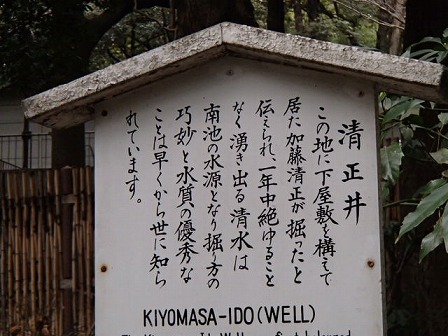 清正井
この地に下屋敷を構えて
居た加藤清正が掘ったと
伝えられ、一年中絶ゆること
なく湧き出る清水は
南池の水源となり掘り方の
巧妙と水質の優秀な
ことは早くから世に知ら
れています。
KIYOMASA-IDO (WELL)